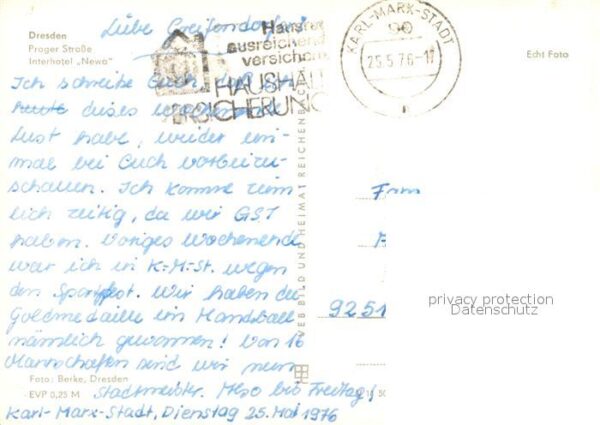 Liebe Greifendorfer!
Dresden
Prager Straße
Interhotel „Newa"
Echt Foto
Hausrat
ausreichend
versichern
HAUSHALT
VERSICHERUNG
KARL-MARX-STADT
90
25.5.76-17
n
Ich schreibe Euch, daß ich
heute dieses Wochenende
Lust habe, wieder ein-
mal bei Euch vorbeizu-
schauen. Ich komme ziem
lich zeitig, da wir GST
haben. Voriges Wochenende
war ich in K.-M.-St. wegen
den Sportfest. Wir haben die
Goldmedaille im Handball
nämlich gewonnen! Von 16
Mannschaften sind wir nun
Stadtmeister. Also bis Freitag!
Karl-Marx-Stadt, Dienstag 25. Mai 1976
Foto: Berke, Dresden
EVP 0,25 M
VEB BILD UND HEIMAT REICHENBACH
Fam
9251
privacy protection
Datenschutz